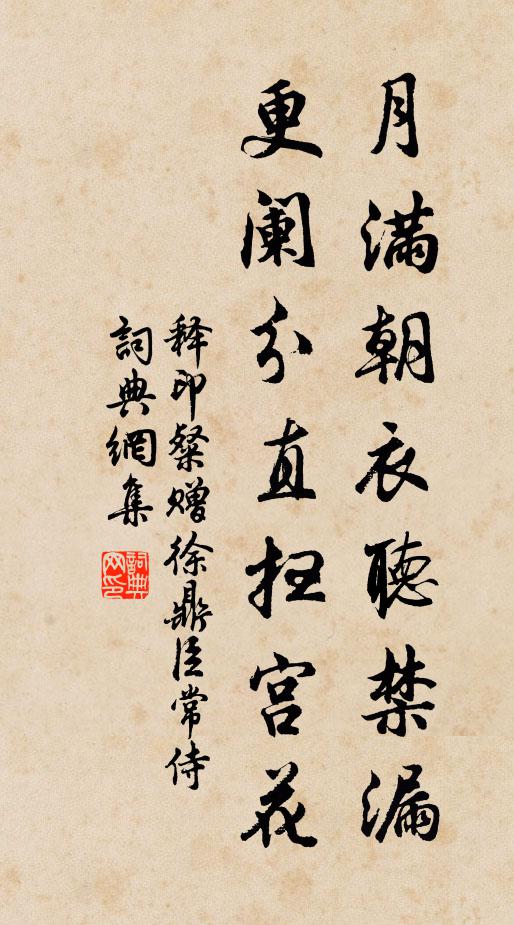 月滿朝衣聽禁漏
更闌分直扫宫花
释印粲赠徐鼎臣常侍
詞典網集
詞典網印